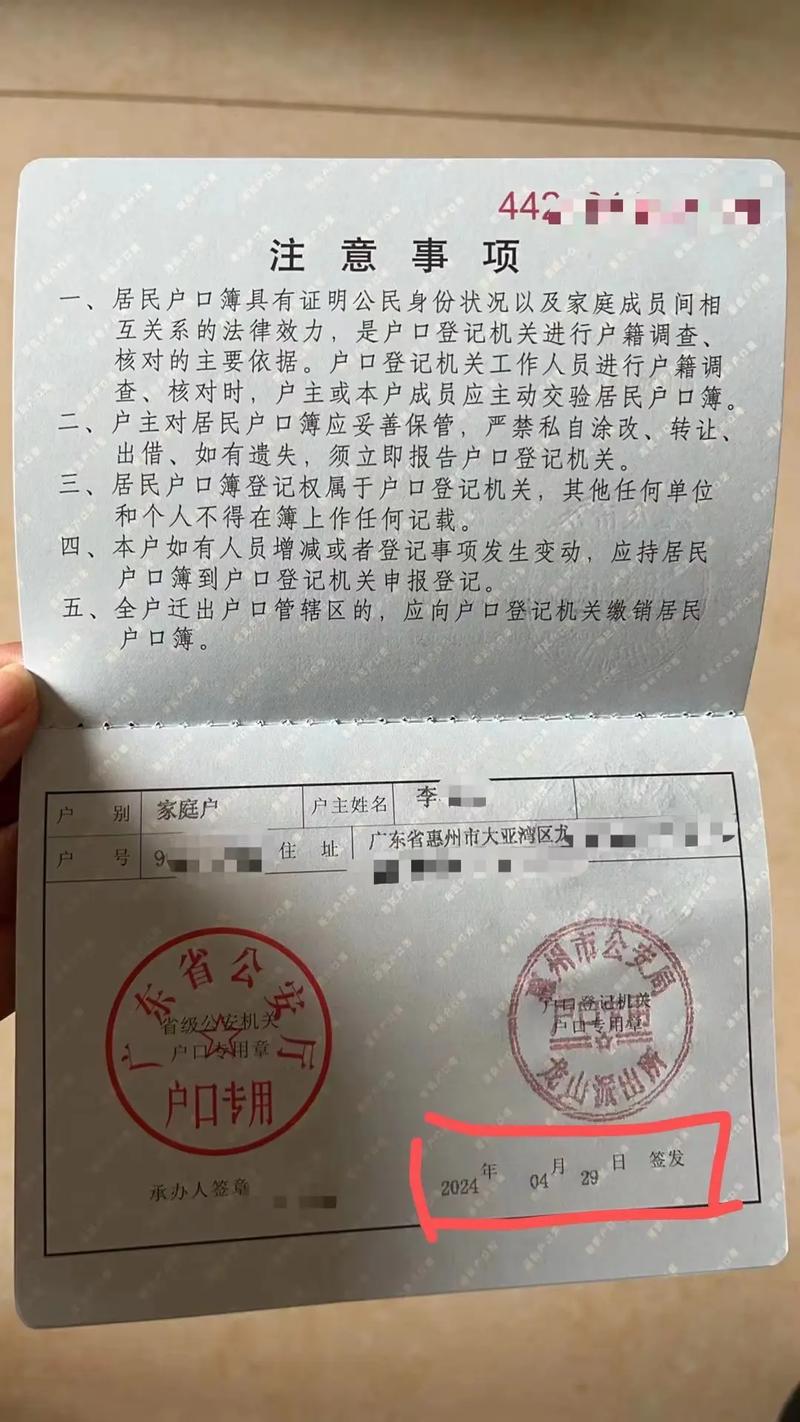 442
注意事项
一、居民户口簿具有证明公民身份状况以及家庭成员间相
互关系的法律效力，是户口登记机关进行户籍调查、
核对的主要依据。户口登记机关工作人员进行户籍调
查、核对时，户主或本户成员应主动交验居民户口簿。
二、户主对居民户口簿应妥善保管，严禁私自涂改、转让、
出借、如有遗失，须立即报告户口登记机关。
三、居民户口簿登记权属于户口登记机关，其他任何单位
和个人不得在簿上作任何记载。
四、本户如有人员增减或者登记事项发生变动，应持居民
户口簿到户口登记机关申报登记。
五、全户迁出户口管辖区的，应向户口登记机关缴销居民
户口簿。
户别 家庭户 户主姓名 李
户号 9 住址 广东省惠州市大亚湾区九
广东省公安厅
省级公安机关
户口专用章
户口专用
惠州市公安局
户口登记机关
户口专用章
龙山派出所
承办人签章
2024年 04月 29日 签发